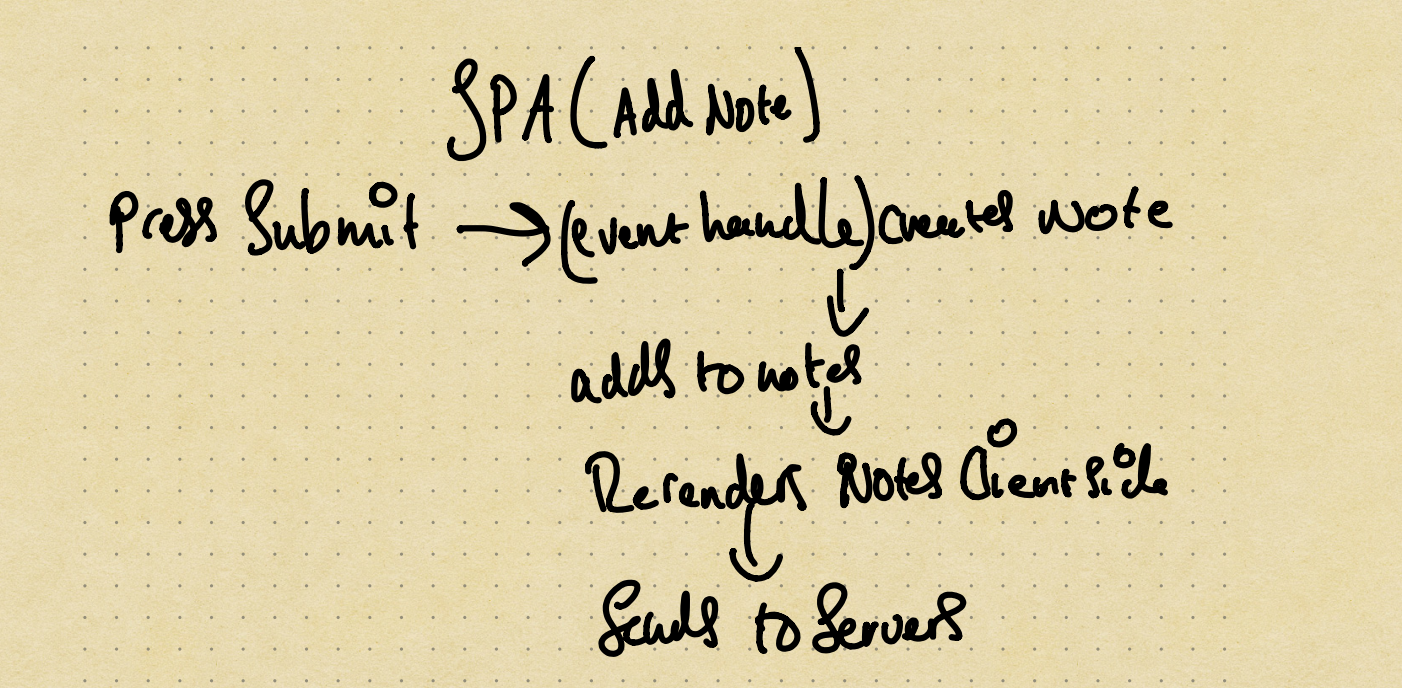 SPA (Add Note)
Press Submit → (event handle) creates Note
adds to notes
Rerenders Notes Client Side
Sends to Servers